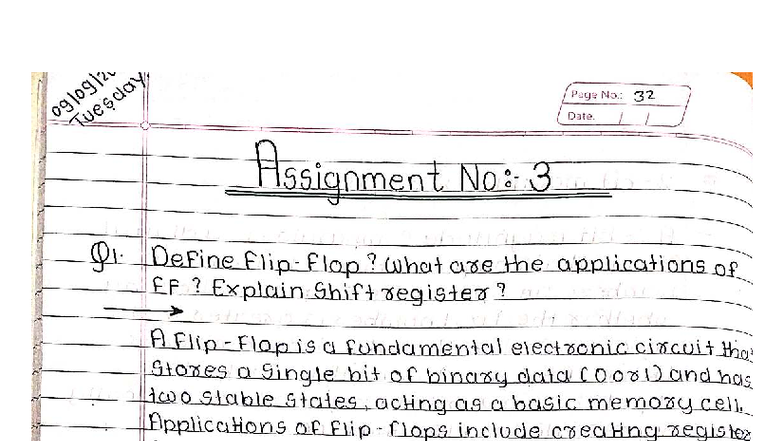 09/09/20
Tuesday
Page No.: 32
Date.
Assignment No:- 3
Q1. Define Flip-Flop? What are the applications of
FF? Explain Shift register?
A Flip-Flop is a fundamental electronic circuit that
Stores a Single bit of binary data (0 or 1) and has
two stable States, acting as a basic memory cell.
Applications of Flip-flops include creating register